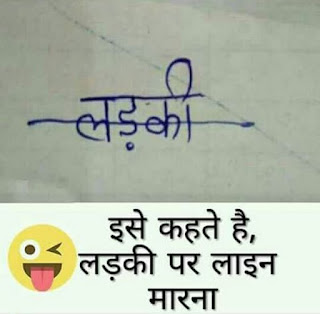 लड़की
इसे कहते है,
लड़की पर लाइन
मारना